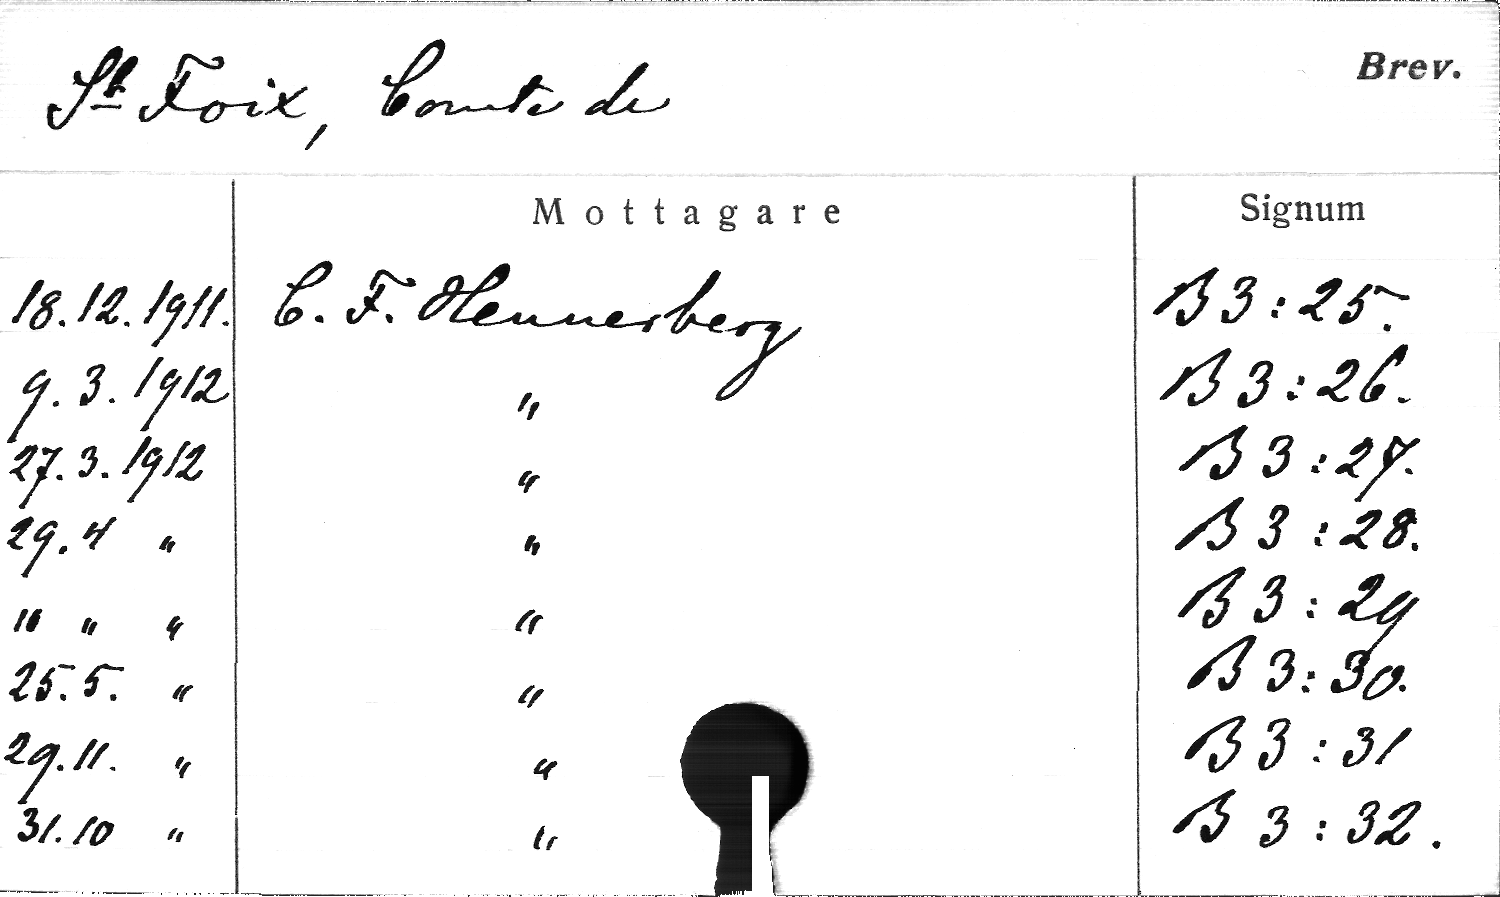 St Foix, Comte de
Brev.
Mottagare
Signum
18.12.1911. C. F. Hennerberg B 3:25.
9. 3. 1912 " B 3:26.
27. 3. 1912 " B 3:27.
29. 4 " " B 3:28.
" " " " B 3:29
25. 5. " " B 3:30.
29. 11. " " B 3:31
31. 10 " " B 3:32.